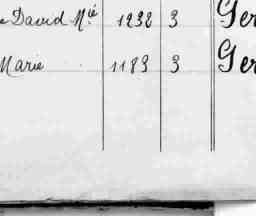 e David Mié 1238 3 Ger
Marie 1183 3 Ger